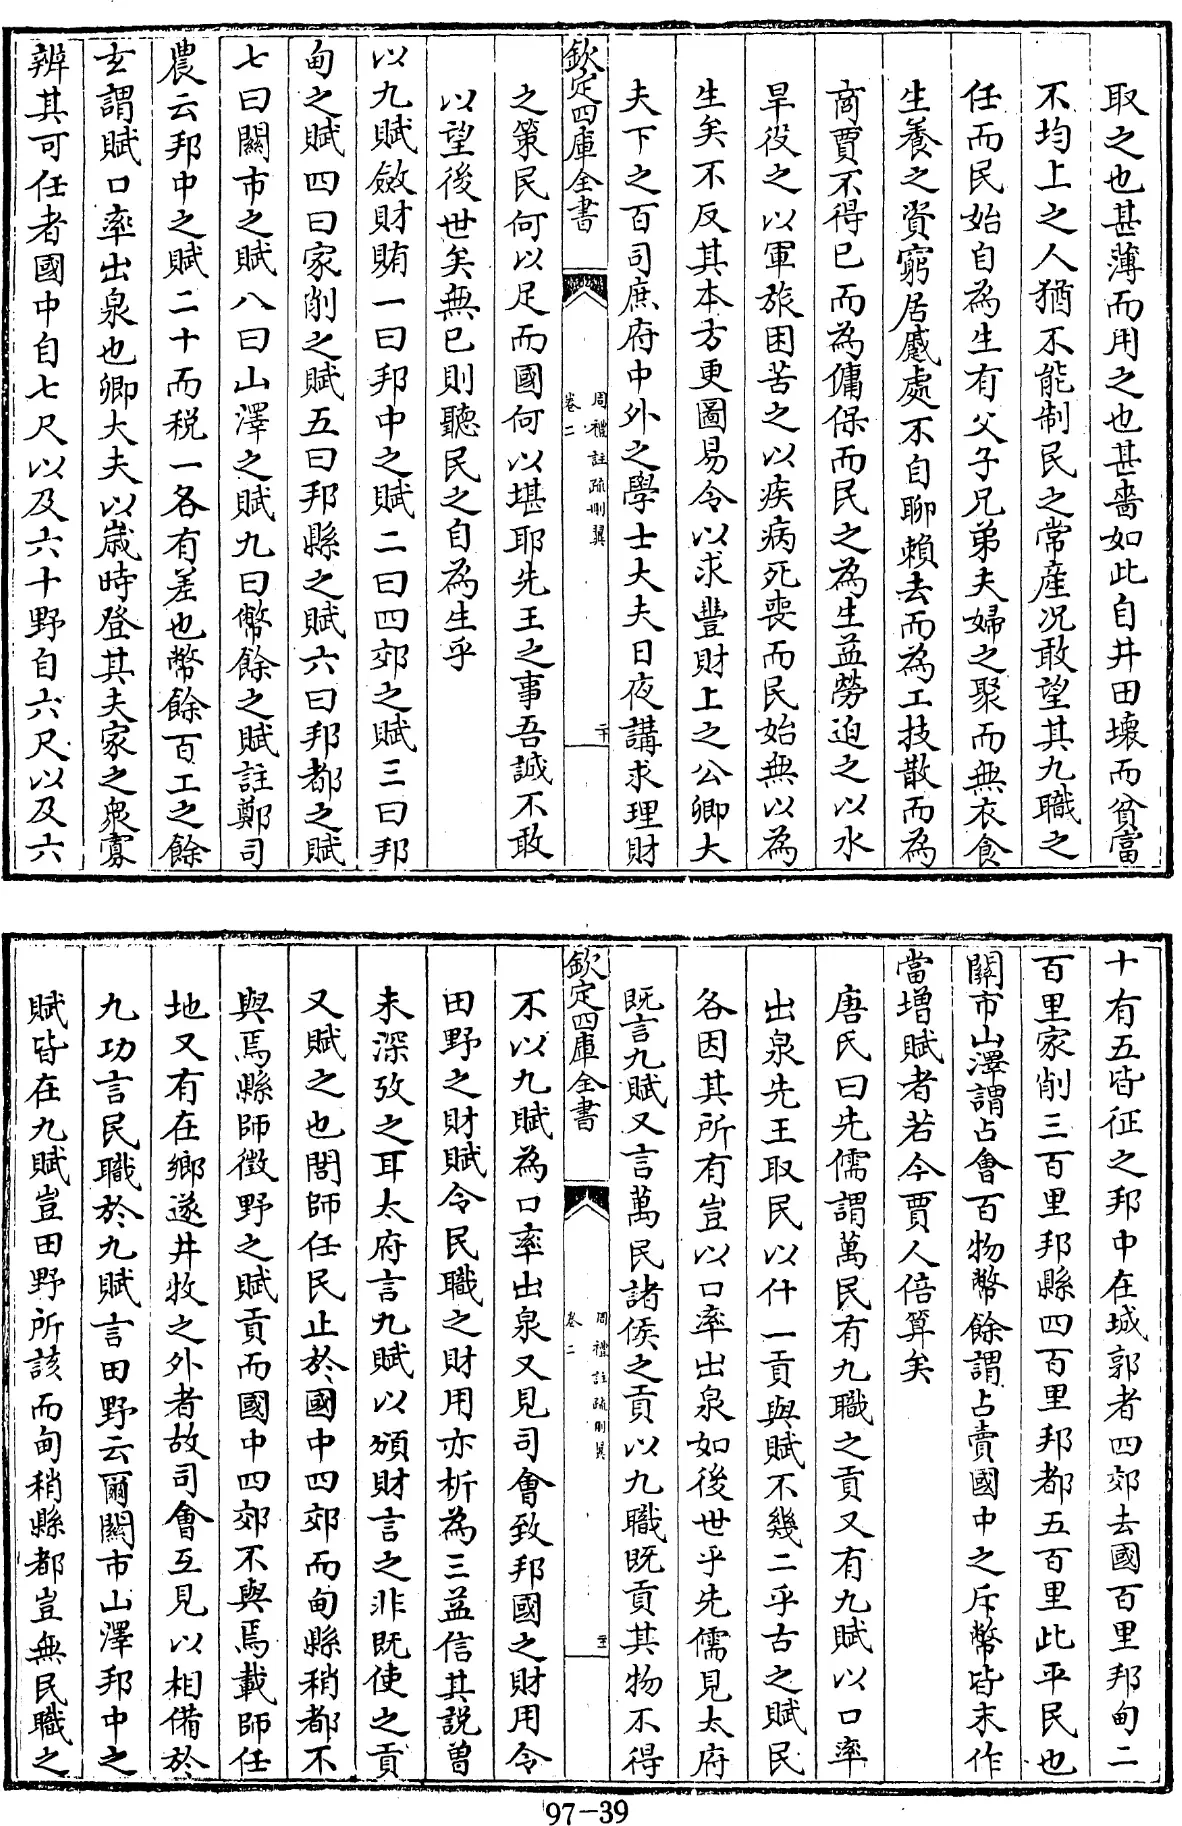 取之也甚薄而用之也甚嗇如此自井田壞而貧富
不均上之人猶不能制民之常産况敢望其九職之
任而民始自為生有父子兄弟夫婦之聚而無衣食
生養之資窮居戚處不自聊賴去而為工技散而為
商賈不得已而為傭保而民之為生益勞迫之以水
旱役之以軍旅困苦之以疾病死喪而民始無以為
生矣不反其本方更圖易令以求豐財上之公卿大
夫下之百司庶府中外之學士大夫日夜講求理財
欽定四庫全書
周禮註疏刪翼
卷二
二十
之策民何以足而國何以堪耶先王之事吾誠不敢
以望後世矣無已則聽民之自為生乎
以九賦斂財賄一曰邦中之賦二曰四郊之賦三曰邦
甸之賦四曰家削之賦五曰邦縣之賦六曰邦都之賦
七曰關市之賦八曰山澤之賦九曰幣餘之賦註鄭司
農云邦中之賦二十而税一各有差也幣餘百工之餘
玄謂賦口率出泉也卿大夫以歲時登其夫家之衆寡
辨其可任者國中自七尺以及六十野自六尺以及六
十有五皆征之邦中在城郭者四郊去國百里邦甸二
百里家削三百里邦縣四百里邦都五百里此平民也
關市山澤謂占會百物幣餘謂占賣國中之斥幣皆末作
當增賦者若今賈人倍算矣
唐氏曰先儒謂萬民有九職之貢又有九賦以口率
出泉先王取民以什一貢與賦不幾二乎古之賦民
各因其所有豈以口率出泉如後世乎先儒見太府
既言九賦又言萬民諸侯之貢以九職既貢其物不得
欽定四庫全書
周禮註疏刪翼
卷二
不以九賦為口率出泉又見司會致邦國之財用令
田野之財賦令民職之財用亦析為三益信其説曾
未深攷之耳太府言九賦以頒財言之非既使之貢
又賦之也閭師任民止於國中四郊而甸縣稍都不
與焉縣師徵野之賦貢而國中四郊不與焉載師任
地又有在鄉遂井牧之外者故司會互見以相備於
九功言民職於九賦言田野云爾關市山澤邦中之
賦皆在九賦豈田野所該而甸稍縣都豈無民職之
97-39